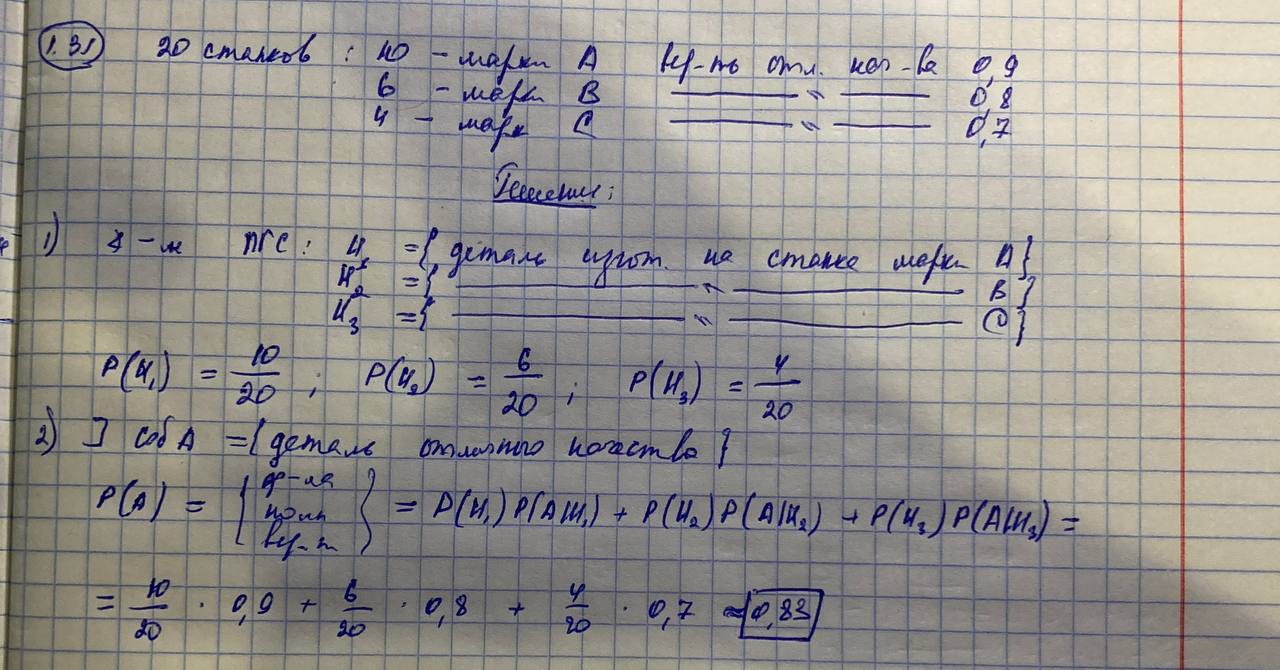 1.31 20 станков : 10 – марки A вер-ть отл. кач-ва 0,9
6 – марки B —— " —— 0,8
4 – марк C —— " —— 0,7
Решение:
1) ПГС: H₁ = { деталь изгот. на станке марки A }
H₂ = { —— " —— B }
H₃ = { —— " —— C }
P(H₁) = 10/20 ; P(H₂) = 6/20 ; P(H₃) = 4/20
2) ] соб A = { деталь отличного качества }
P(A) = { ф-ла полн вер-ти } = P(H₁) P(A|H₁) + P(H₂) P(A|H₂) + P(H₃) P(A|H₃) =
= 10/20 · 0,9 + 6/20 · 0,8 + 4/20 · 0,7 = 0,83